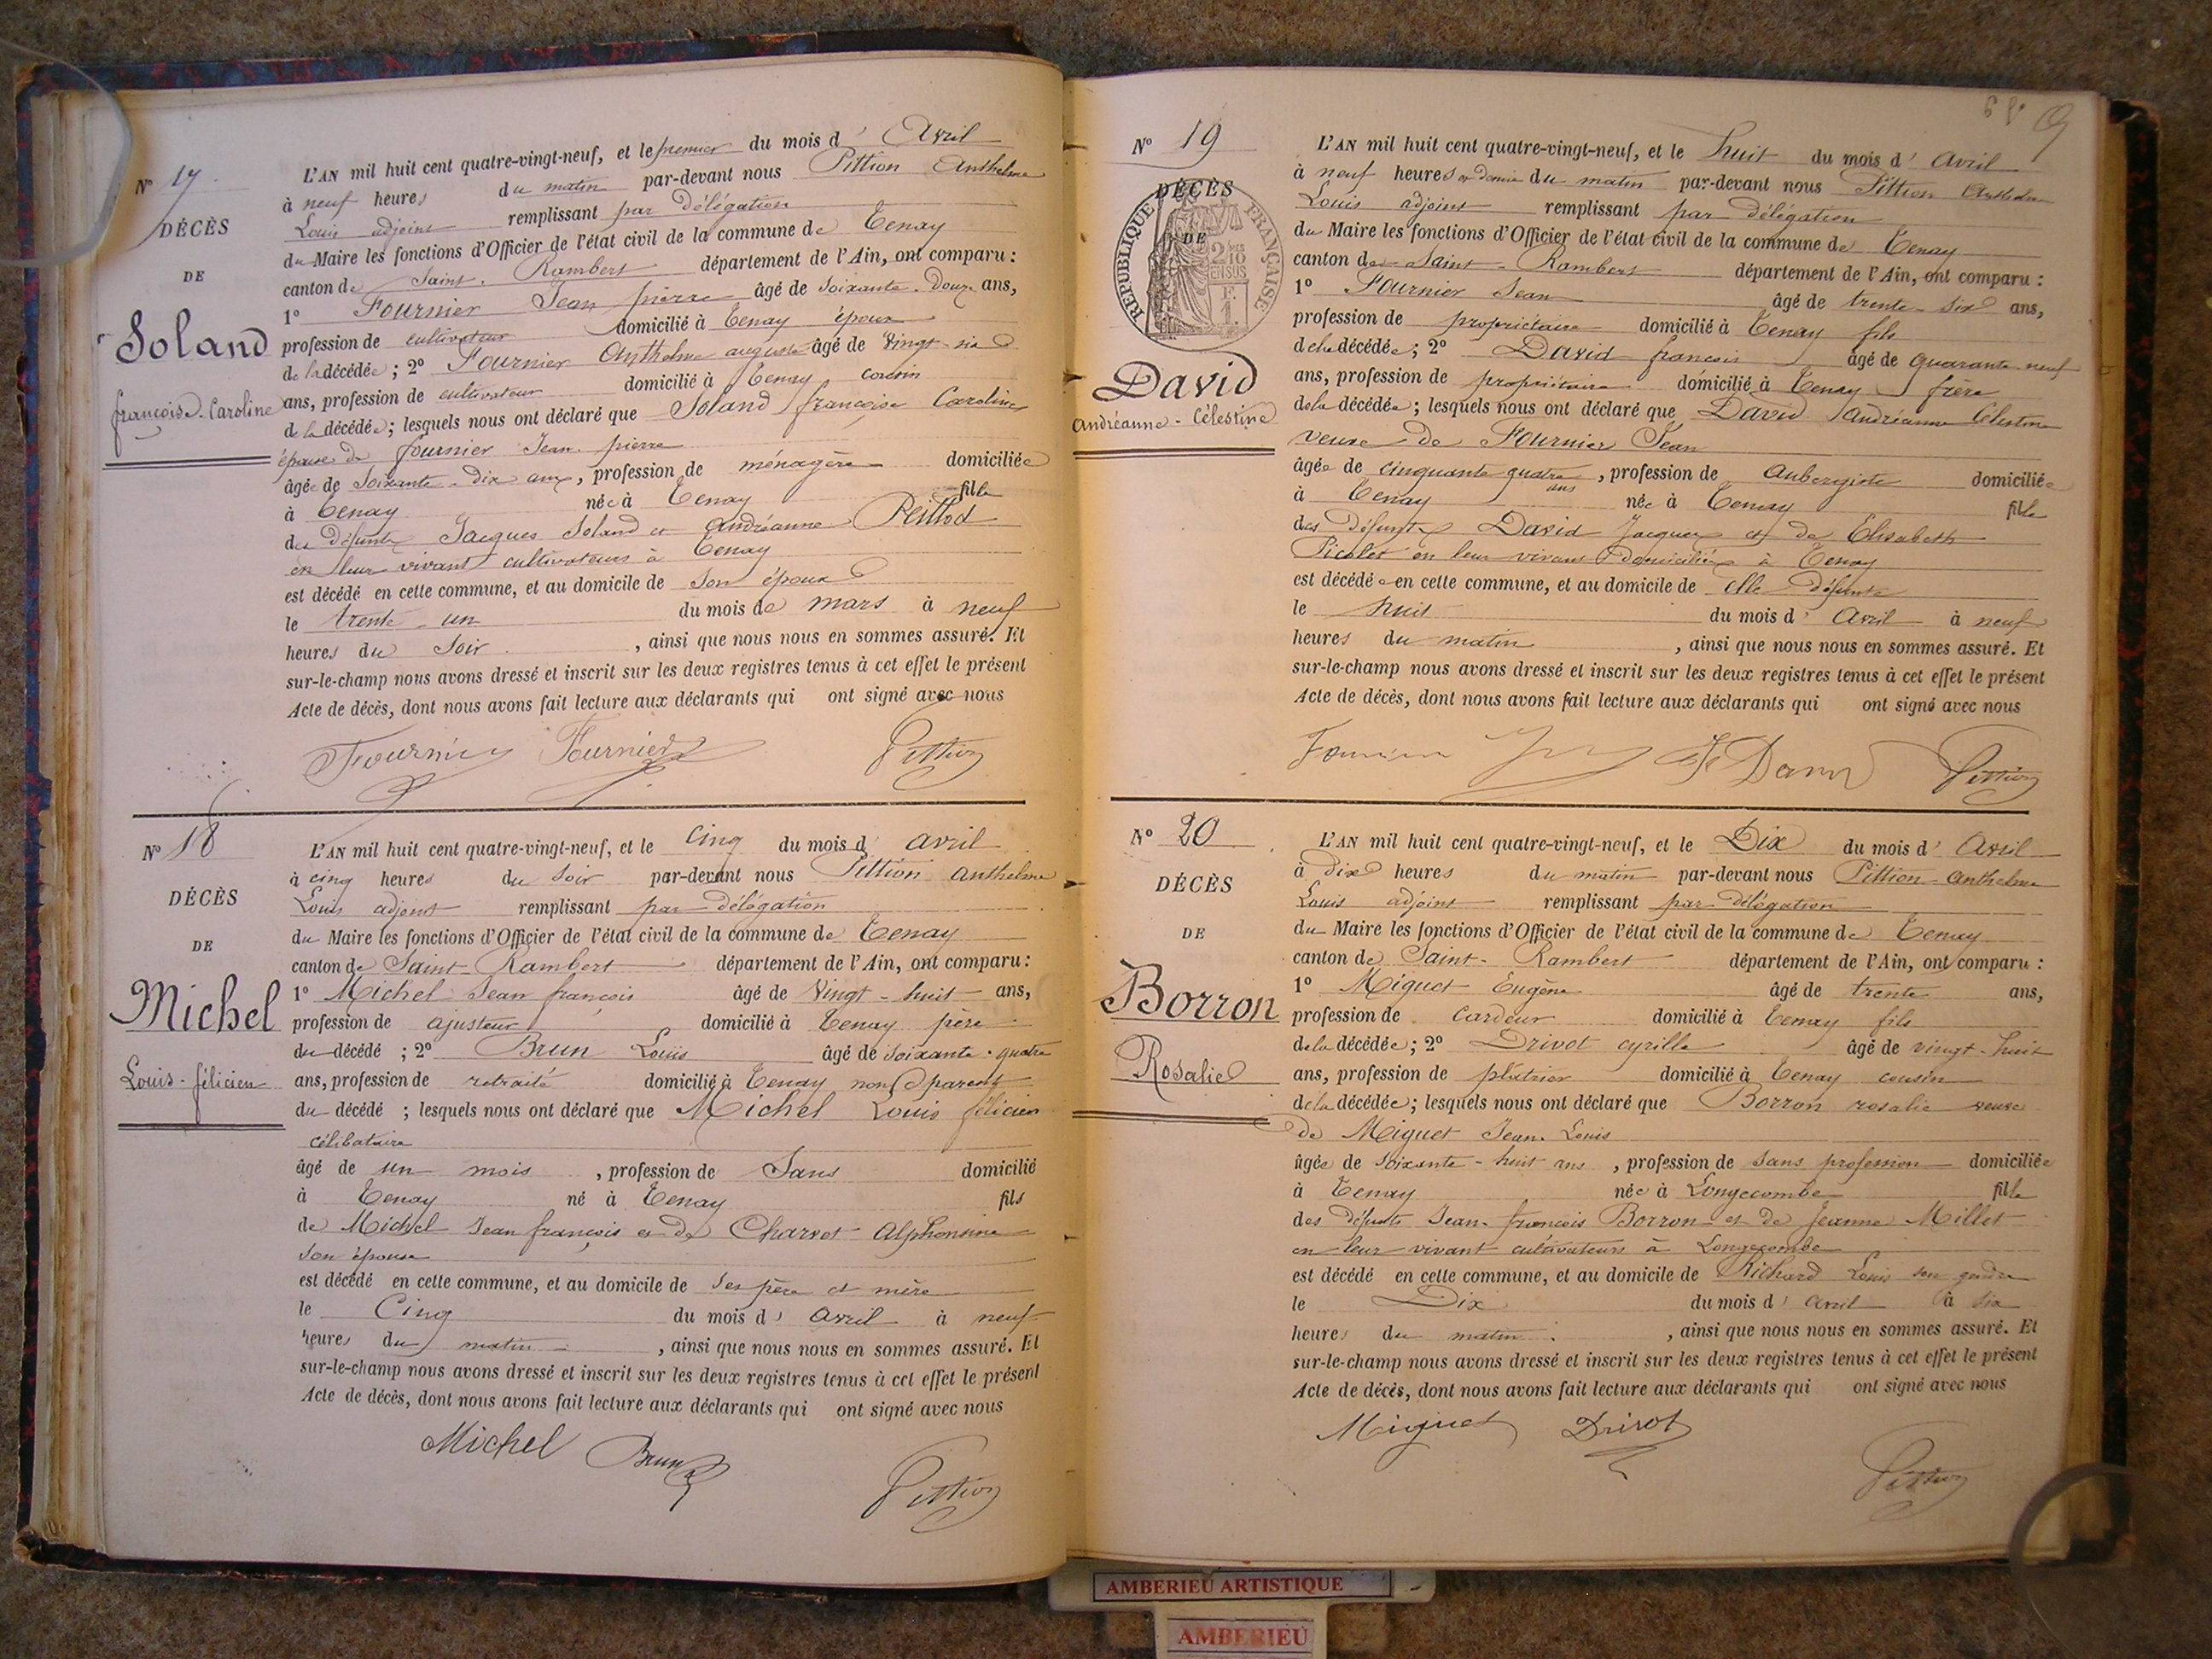 N° 17
DÉCÈS
DE
Soland
françoise-Caroline
L'AN mil huit cent quatre-vingt-neuf, et le premier du mois d' Avril
à neuf heures du matin par-devant nous Pittion Anthelme
Louis adjoint remplissant par délégation
du Maire les fonctions d'Officier de l'état civil de la commune de Tenay
canton de Saint-Rambert département de l'Ain, ont comparu :
1° Fournier Jean pierre âgé de soixante-douze ans,
profession de cultivateur domicilié à Tenay époux
de la décédée ; 2° Fournier Anthelme auguste âgé de vingt-six
ans, profession de cultivateur domicilié à Tenay cousin
de la décédée ; lesquels nous ont déclaré que Soland françoise Caroline
épouse de fournier Jean pierre
âgée de soixante-dix ans, profession de ménagère domiciliée
à Tenay née à Tenay fille
des défunts Jacques Soland et Andréanne
en leur vivant cultivateurs à Tenay
est décédé en cette commune, et au domicile de son époux
le trente-un du mois de mars à neuf
heures du soir, ainsi que nous nous en sommes assuré. Et
sur-le-champ nous avons dressé et inscrit sur les deux registres tenus à cet effet le présent
Acte de décès, dont nous avons fait lecture aux déclarants qui ont signé avec nous
Fournier Fournier Pittion
N° 18
DÉCÈS
DE
Michel
Louis-félicien
L'AN mil huit cent quatre-vingt-neuf, et le cinq du mois d' avril
à cinq heures du soir par-devant nous Pittion anthelme
Louis adjoint remplissant par délégation
du Maire les fonctions d'Officier de l'état civil de la commune de Tenay
canton de Saint-Rambert département de l'Ain, ont comparu :
1° Michel Jean françois âgé de vingt-huit ans,
profession de ajusteur domicilié à Tenay père
du décédé ; 2° Brun Louis âgé de soixante-quatre
ans, profession de retraité domicilié à Tenay non parent
du décédé ; lesquels nous ont déclaré que Michel Louis félicien
célibataire
âgé de un mois, profession de Sans domicilié
à Tenay né à Tenay fils
de Michel Jean françois et de Charvet Alphonsine
son épouse
est décédé en cette commune, et au domicile de ses père et mère
le Cinq du mois d' avril à neuf
heures du matin, ainsi que nous nous en sommes assuré. Et
sur-le-champ nous avons dressé et inscrit sur les deux registres tenus à cet effet le présent
Acte de décès, dont nous avons fait lecture aux déclarants qui ont signé avec nous
Michel Brun Pittion
N° 19
DÉCÈS
DE
RÉPUBLIQUE FRANÇAISE
David
Andréanne-Célestine
L'AN mil huit cent quatre-vingt-neuf, et le huit du mois d' avril
à neuf heures et demie du matin par-devant nous Pittion Anthelme
Louis adjoint remplissant par délégation
du Maire les fonctions d'Officier de l'état civil de la commune de Tenay
canton de Saint-Rambert département de l'Ain, ont comparu :
1° Fournier Jean âgé de trente-six ans,
profession de propriétaire domicilié à Tenay fils
de la décédée ; 2° David françois âgé de quarante neuf
ans, profession de propriétaire domicilié à Tenay frère
de la décédée ; lesquels nous ont déclaré que David Andréanne Célestine
veuve de Fournier Jean
âgée de cinquante quatre ans, profession de Aubergiste domiciliée
à Tenay née à Tenay fille
des défunts David Jacques et de Elisabeth
Picolet en leur vivant domiciliés à Tenay
est décédée en cette commune, et au domicile de elle défunte
le huit du mois d' avril à neuf
heures du matin, ainsi que nous nous en sommes assuré. Et
sur-le-champ nous avons dressé et inscrit sur les deux registres tenus à cet effet le présent
Acte de décès, dont nous avons fait lecture aux déclarants qui ont signé avec nous
Pittion
N° 20
DÉCÈS
DE
Borron
Rosalie
L'AN mil huit cent quatre-vingt-neuf, et le Dix du mois d' Avril
à dix heures du matin par-devant nous Pittion anthelme
Louis adjoint remplissant par délégation
du Maire les fonctions d'Officier de l'état civil de la commune de Tenay
canton de Saint-Rambert département de l'Ain, ont comparu :
1° Miguet Eugène âgé de trente ans,
profession de cardeur domicilié à Tenay fils
de la décédée ; 2° Drivot cyrille âgé de vingt-huit
ans, profession de plâtrier domicilié à Tenay cousin
de la décédée ; lesquels nous ont déclaré que Borron rosalie veuve
de Miguet Jean-Louis
âgée de soixante-huit ans, profession de sans profession domiciliée
à Tenay née à Longecombe fille
des défunts Jean-françois Borron et de Jeanne Millet
en leur vivant cultivateurs à Longecombe
est décédé en cette commune, et au domicile de Richard Louis son gendre
le Dix du mois d' avril à six
heures du matin, ainsi que nous nous en sommes assuré. Et
sur-le-champ nous avons dressé et inscrit sur les deux registres tenus à cet effet le présent
Acte de décès, dont nous avons fait lecture aux déclarants qui ont signé avec nous
Miguet Drivot
Pittion
AMBERIEU ARTISTIQUE
AMBERIEU